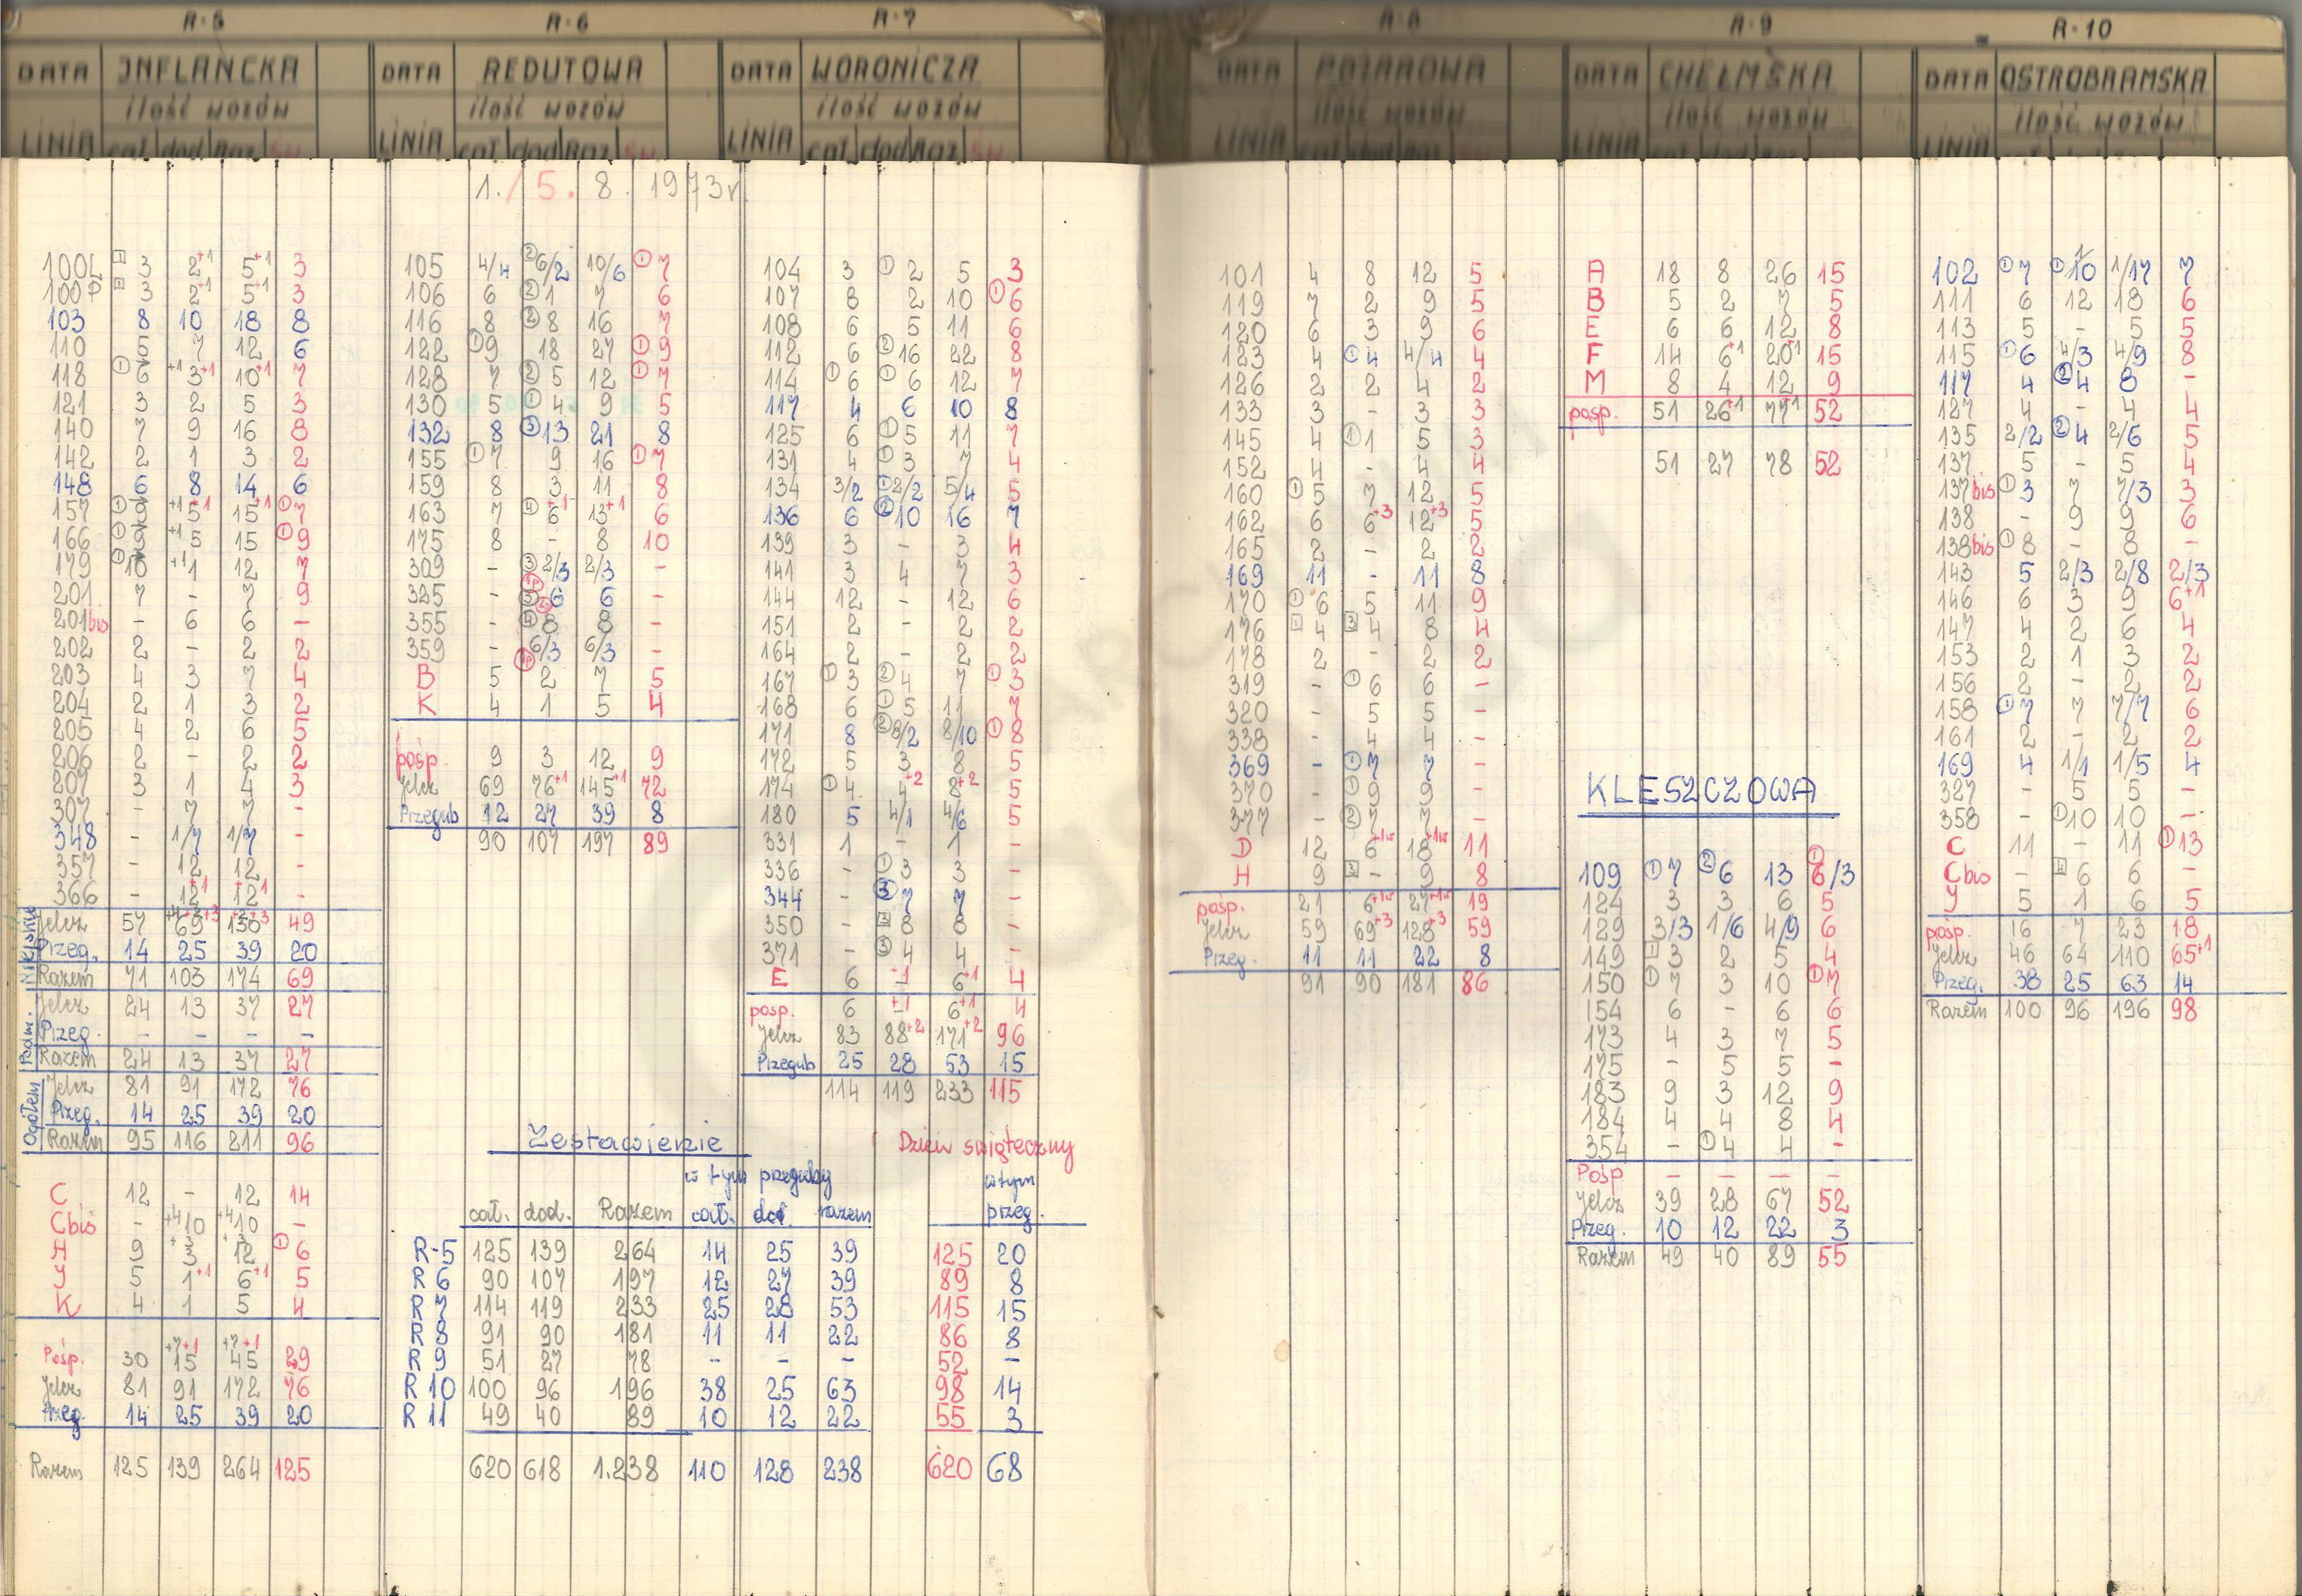 R-5
JNFLANCKA
DATA
ilość wozów
LINIA
cał. dod Raz. św
100L 3 2+1 5+1 3
100P 3 2+1 5+1 3
103 8 10 18 8
110 5 7 12 6
118 ① 6 +1 3+1 10+1 7
121 3 2 5 3
140 7 9 16 8
142 2 1 3 2
148 6 8 14 6
157 ① +1 5+1 15+1 ① 7
166 ① 9 +1 5 15 ① 9
179 ① 10 +1 1 12 7
201 7 - 7 9
201bis - 6 6 -
202 2 - 2 2
203 4 3 7 4
204 2 1 3 2
205 4 2 6 5
206 2 - 2 2
207 3 1 4 3
307 - 7 7 -
348 - 1/7 1/7 -
357 - 12 12 -
366 - 12+1 12+1 -
Miejskie
Jelcz 57 69 130 49
Przeg. 14 25 39 20
Razem 71 103 174 69
Podm.
Jelcz 24 13 37 27
Przeg. - - - -
Razem 24 13 37 27
Ogółem
Jelcz 81 91 172 76
Przeg. 14 25 39 20
Razem 95 116 211 96
C 12 - 12 14
Cbis - +4 10 +4 10 -
H 9 +3 3 +3 12 ① 6
Y 5 1+1 6+1 5
K 4 1 5 4
Pośp. 30 +7+1 15 +7+1 45 29
Jelcz 81 91 172 76
Przeg. 14 25 39 20
Razem 125 139 264 125
R-6
DATA REDUTOWA
ilość wozów
LINIA
cał. dod Raz św
1./5. 8. 1973r.
105 4/4 ② 6/2 10/6 ① 7
106 6 ② 1 7 6
116 8 ② 8 16 7
122 ① 9 18 27 ① 9
128 7 ② 5 12 ① 7
130 5 ① 4 9 5
132 8 ③ 13 21 8
155 ① 7 9 16 ① 7
159 8 3 11 8
163 7 ④ 6+1 13+1 6
175 8 - 8 10
309 - ③ 2/3 2/3 -
325 - ③ 6 6 -
355 - ④ 8 8 -
359 - 6/3 6/3 -
B 5 2 7 5
K 4 1 5 4
pośp. 9 3 12 9
Jelcz 69 76+1 145+1 72
Przegub 12 27 39 8
90 107 197 89
R-7
DATA WORONICZA
ilość wozów
LINIA
cał. dod Raz. św
104 3 ① 2 5 3
107 8 2 10 ① 6
108 6 5 11 6
112 6 ② 16 22 8
114 ① 6 ① 6 12 7
117 4 6 10 8
125 6 ① 5 11 7
131 4 ① 3 7 4
134 3/2 ① 2/2 5/4 5
136 6 ② 10 16 7
139 3 - 3 4
141 3 4 7 3
144 12 - 12 6
151 2 - 2 2
164 2 - 2 2
167 ① 3 ② 4 7 ① 3
168 6 ① 5 11 7
171 8 ② 8/2 8/10 ① 8
172 5 3 8 5
174 ① 4 4+2 8+2 5
180 5 4/1 4/6 5
331 1 - 1 -
336 - ① 3 3 -
344 - ③ 7 7 -
350 - 8 8 -
371 - ③ 4 4 -
E 6 -1 6+1 4
pośp. 6 +1 6+1 4
Jelcz 83 88+2 171+2 96
Przegub 25 28 53 15
114 119 233 115
Zestawienie
Dzień świąteczny
w tym przeguby
w tym
cał. dod. Razem cał. dod. razem przeg.
R-5 125 139 264 14 25 39 125 20
R 6 90 107 197 12 27 39 89 8
R 7 114 119 233 25 28 53 115 15
R 8 91 90 181 11 11 22 86 8
R 9 51 27 78 - - - 52 -
R 10 100 96 196 38 25 63 98 14
R 11 49 40 89 10 12 22 55 3
620 618 1.238 110 128 238 620 68
R-8
DATA POŻAROWA
ilość wozów
LINIA
cał. dod Raz. św
101 4 8 12 5
119 7 2 9 5
120 6 3 9 6
123 4 ① 4 4/4 4
126 2 2 4 2
133 3 - 3 3
145 4 ① 1 5 3
152 4 - 4 4
160 ① 5 7 12 5
162 6 6+3 12+3 5
165 2 - 2 2
169 11 - 11 8
170 ① 6 5 11 9
176 4 4 8 4
178 2 - 2 2
319 - ① 6 6 -
320 - 5 5 -
338 - 4 4 -
369 - ① 7 7 -
370 - ① 9 9 -
377 - ② 7 7 -
D 12 6 18 11
H 9 - 9 8
pośp. 21 6 27 19
Jelcz 59 69+3 128+3 59
Przeg. 11 11 22 8
91 90 181 86
R-9
DATA CHEŁMSKA
ilość wozów
LINIA
cał. dod Raz. św
A 18 8 26 15
B 5 2 7 5
E 6 6 12 8
F 14 6+1 20+1 15
M 8 4 12 9
pośp. 51 26+1 77+1 52
51 27 78 52
KLESZCZOWA
109 ① 7 ② 6 13 ① 6/3
124 3 3 6 5
129 3/3 1/6 4/9 6
149 3 2 5 4
150 ① 7 3 10 ① 7
154 6 - 6 6
173 4 3 7 5
175 - 5 5 -
183 9 3 12 9
184 4 4 8 4
354 - ① 4 4 -
Pośp - - - -
Jelcz 39 28 67 52
Przeg. 10 12 22 3
Razem 49 40 89 55
R-10
DATA OSTROBRAMSKA
ilość wozów
LINIA
102 ① 7 ① 1/10 1/17 7
111 6 12 18 6
113 5 - 5 5
115 ① 6 4/3 4/9 8
117 4 ② 4 8 -
127 4 - 4 4
135 2/2 ② 4 2/6 5
137 5 - 5 4
137bis ① 3 7 7/3 3
138 - 9 9 6
138bis ① 8 - 8 -
143 5 2/3 2/8 2/3
146 6 3 9 6+1
147 4 2 6 4
153 2 1 3 2
156 2 - 2 2
158 ① 7 7 7/7 6
161 2 - 2 2
169 4 1/1 1/5 4
327 - 5 5 -
358 - ① 10 10 -
C 11 - 11 ① 13
Cbis - 6 6 -
Y 5 1 6 5
pośp. 16 7 23 18
Jelcz 46 64 110 65+1
Przeg. 38 25 63 14
Razem 100 96 196 98